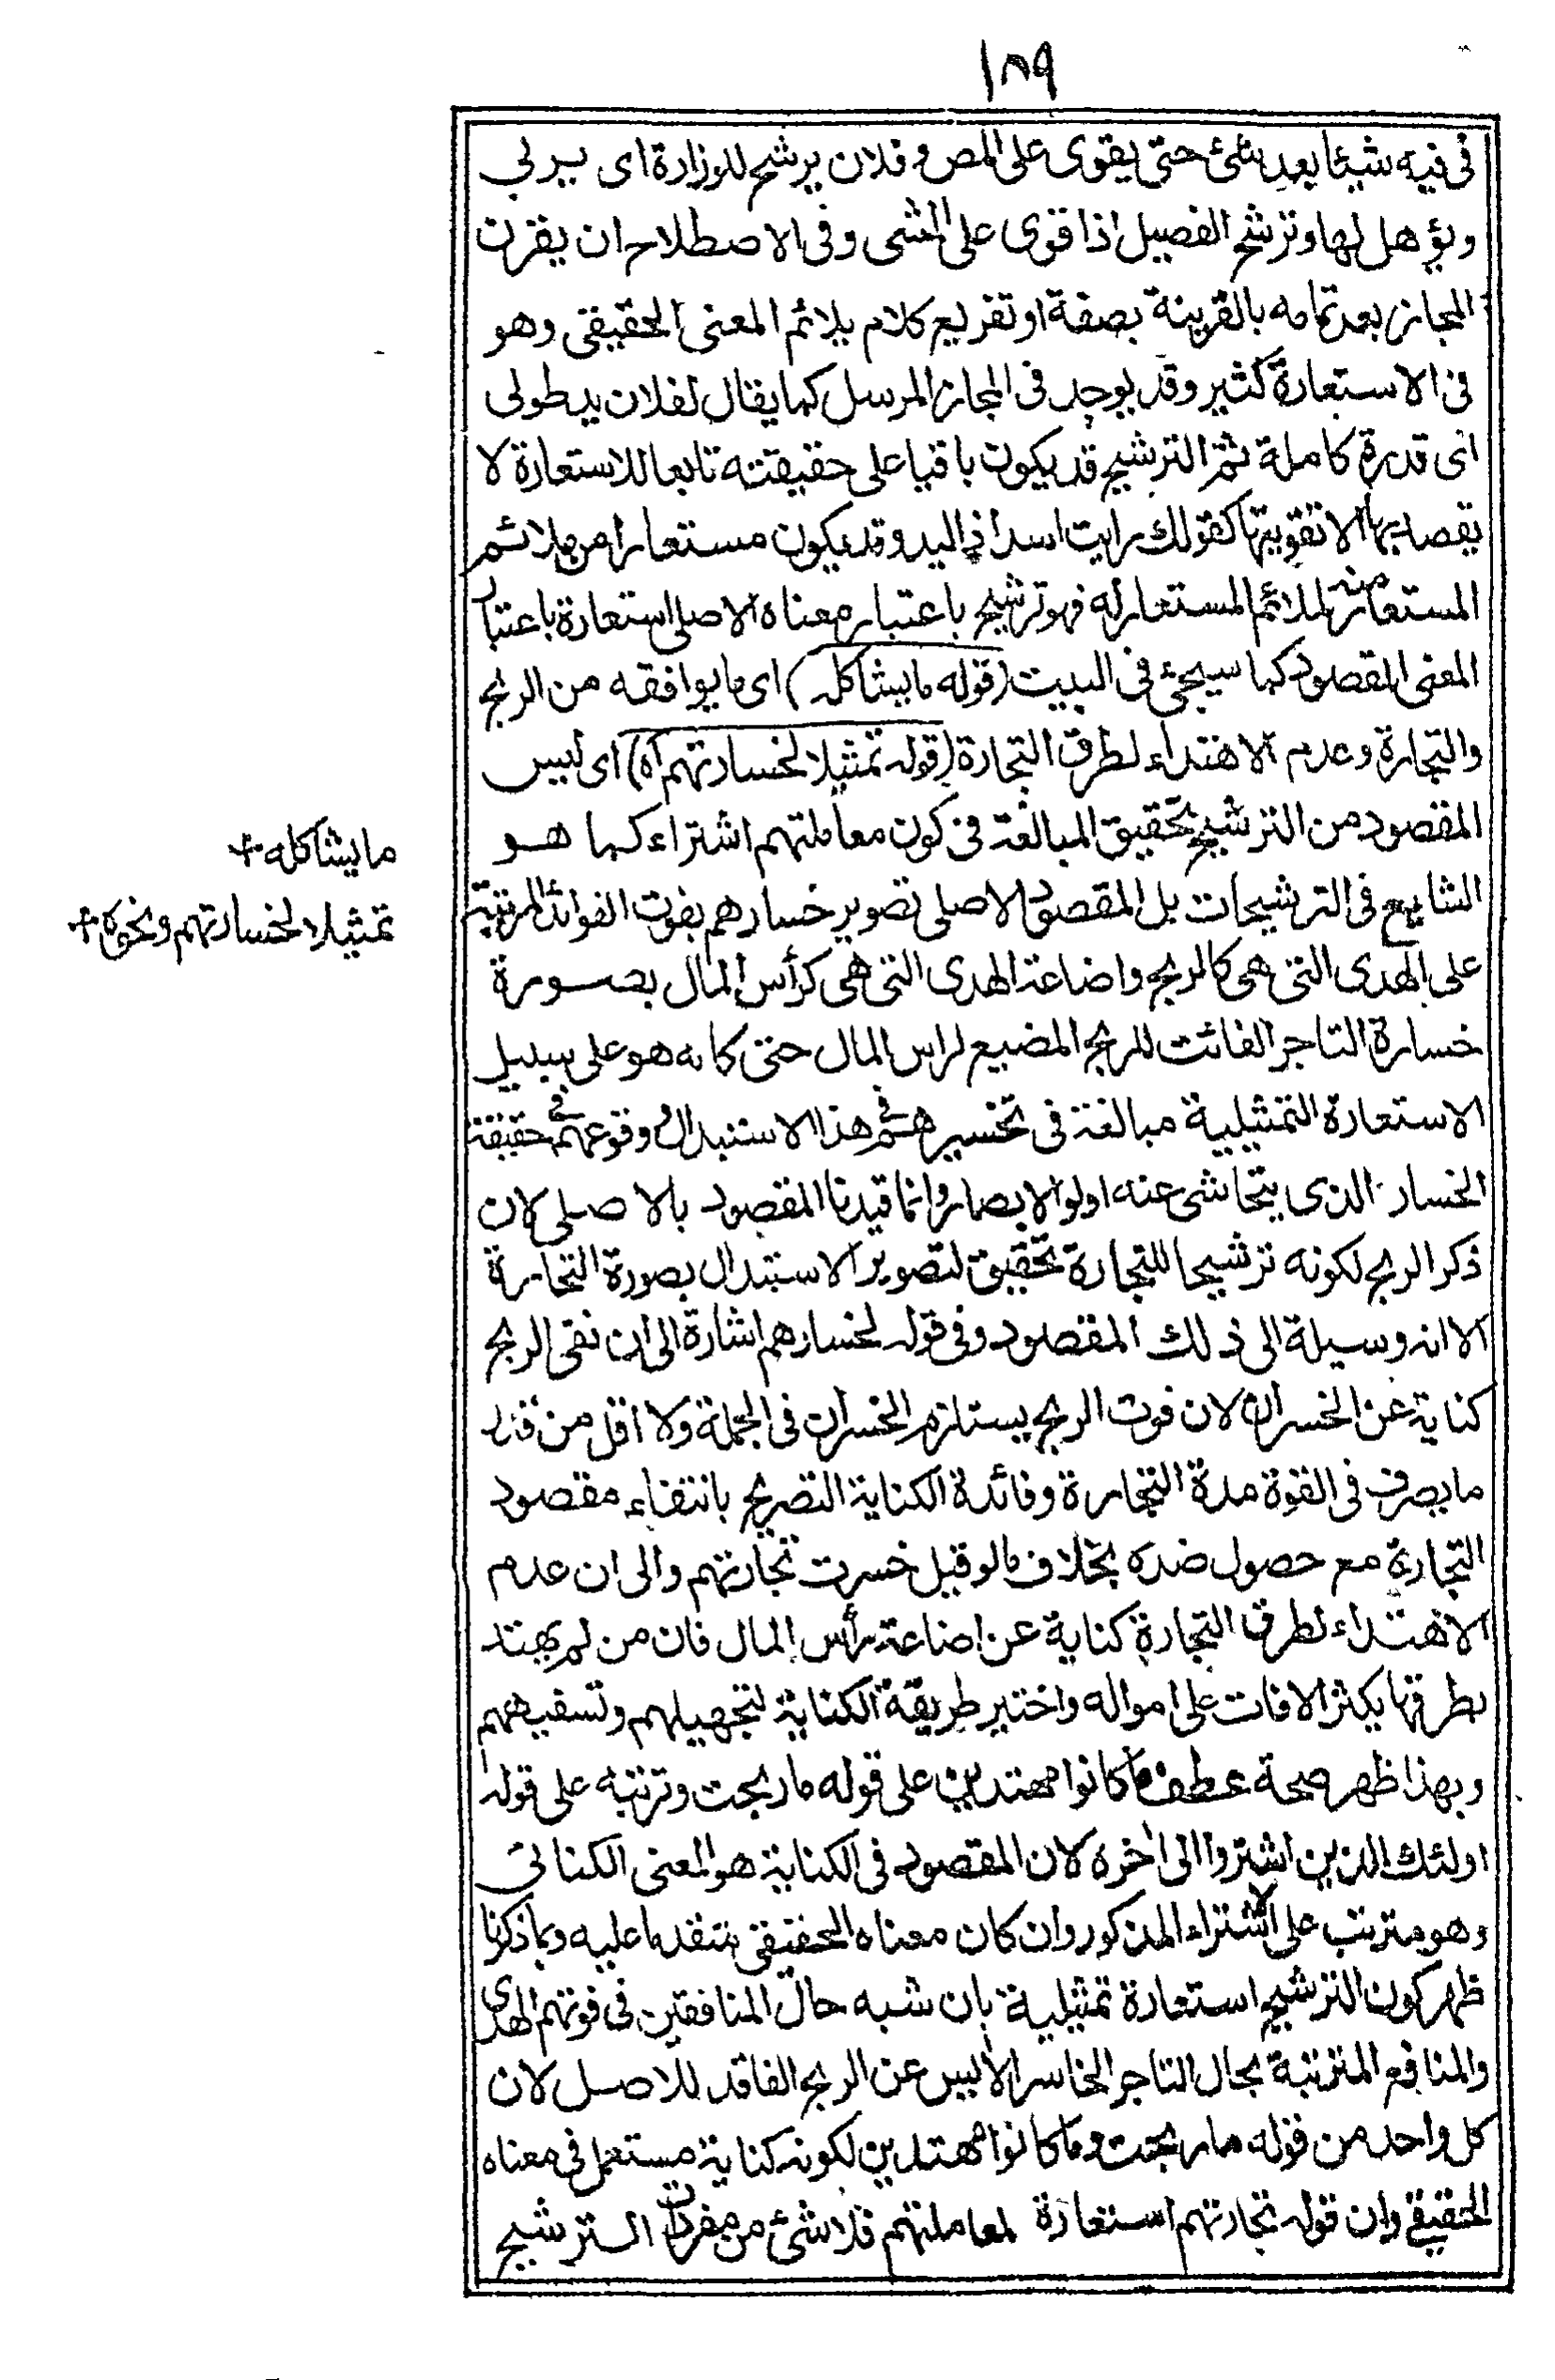 ١٨٩
فى فيه شيئا بعد شئ حتى يقوى على المص وفلان يرشح للوزارة اى يربى
ويؤهل لها وترشح الفصيل اذا قوى على المشى وفى الاصطلاح ان يقرن
المجاز بعد تمامه بالقرينة بصفة او تفريع كلام يلائم المعنى الحقيقى وهو
فى الاستعارة كثير وقد يوجد فى المجاز المرسل كما يقال لفلان يد طولى
اى قدرة كاملة ثم الترشيح قد يكون باقيا على حقيقته تابعا للاستعارة لا
يقصد بها الا تقويتها كقولك رايت اسدا ذا اليد وقد يكون مستعارا من ملائم
المستعار منه لملائم المستعار له فهو ترشيح باعتبار معناه الاصلى استعارة باعتبار
المعنى المقصود كما سيجئ فى البيت (قوله ما يشاكله) اى ما يوافقه من الربح
والتجارة وعدم الاهتداء لطرق التجارة (قوله تمثيلا لخسارتهم اه) اى ليس
المقصود من الترشيح تحقيق المبالغة فى كون معاملتهم اشتراء كما هو
الشايع فى الترشيحات بل المقصود الاصلى تصوير خسارهم بفوت الفوائد المرتبة
على الهدى التى هى كالربح واضاعة الهدى التى هى كرأس المال بصورة
خسارة التاجر الفائت للربح المضيع لراس المال حتى كانه هو على سبيل
الاستعارة التمثيلية مبالغة فى تخسيرهم فى هذا الاستبدال ووقوعهم فى حقيقة
الخسار الذى يتحاشى عنه اولو الابصار وانما قيدنا المقصود بالاصلى لان
ذكر الربح لكونه ترشيحا للتجارة تحقيق لتصوير الاستبدال بصورة التجارة
الا انه وسيلة الى ذلك المقصود وفى قوله لخسارهم اشارة الى ان نفى الربح
كناية عن الخسران لان فوت الربح يستلزم الخسران فى الجملة ولا اقل من قدر
ما يصرف فى القوة مدة التجارة وفائدة الكناية التصريح بانتفاء مقصود
التجارة مع حصول ضده بخلاف ما لو قيل خسرت تجارتهم والى ان عدم
الاهتداء لطرق التجارة كناية عن اضاعة رأس المال فان من لم يهتد
بطرقها يكثر الافات على امواله واختير طريقة الكناية لتجهيلهم وتسفيههم
وبهذا ظهر صحة عطف ما كانوا مهتدين على قوله ما ربحت وترتبه على قوله
اولئك الذين اشتروا الى اخره لان المقصود فى الكناية هو المعنى الكنائى
وهو مترتب على الاشتراء المذكور وان كان معناه الحقيقى متقدما عليه وبما ذكرنا
ظهر كون الترشيح استعارة تمثيلية بان شبه حال المنافقين فى فوتهم الهدى
والمنافع المترتبة بحال التاجر الخاسر الآيس عن الربح الفاقد للاصل لان
كل واحد من قوله ما ربحت وما كانوا مهتدين لكونه كناية مستعمل فى معناه
الحقيقى وان قوله تجارتهم استعارة لمعاملتهم فلا شئ من مفردات الترشيح
ما يشاكله +
تمثيلا لخسارتهم ونحوه +